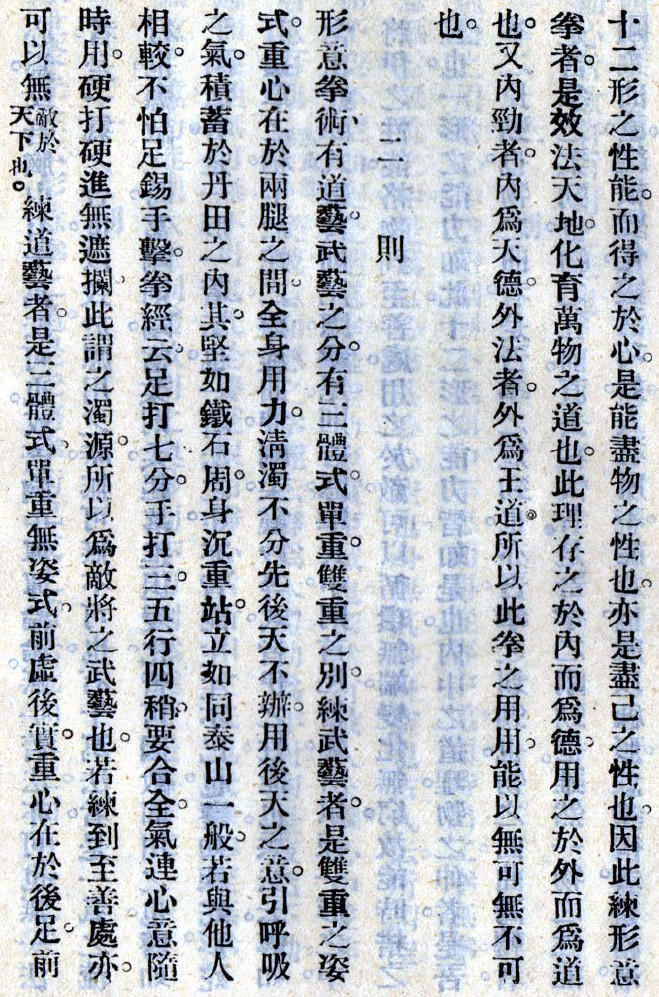 十二形之性能。而得之於心。是能盡物之性也。亦是盡己之性也。因此練形意
拳者。是效法天地。化育萬物之道也。此理存之於內而爲德。用之於外而爲道
也。又內勁者。內爲天德。外法者。外爲王道。所以此拳之用。用能以無可無不可
也。
二則
形意拳術、有道藝。武藝之分。有三體式。單重。雙重之別。練武藝者。是雙重之姿
式。重心在於兩腿之間。全身用力。清濁不分。先後天不辦。用後天之意。引呼吸
之氣。積蓄於丹田之內。其堅如鐵石。周身沉重。站立如同泰山一般。若與他人
相較。不怕足錫手擊。拳經云。足打七分。手打三。五行四稍。要合全。氣連心意隨
時用。硬打硬進無遮攔。此謂之濁源。所以爲敵將之武藝也。若練到至善處。亦
可以無敵於天下也。練道藝者。是三體式、單重無姿式。前虛後實。重心在於後足。前